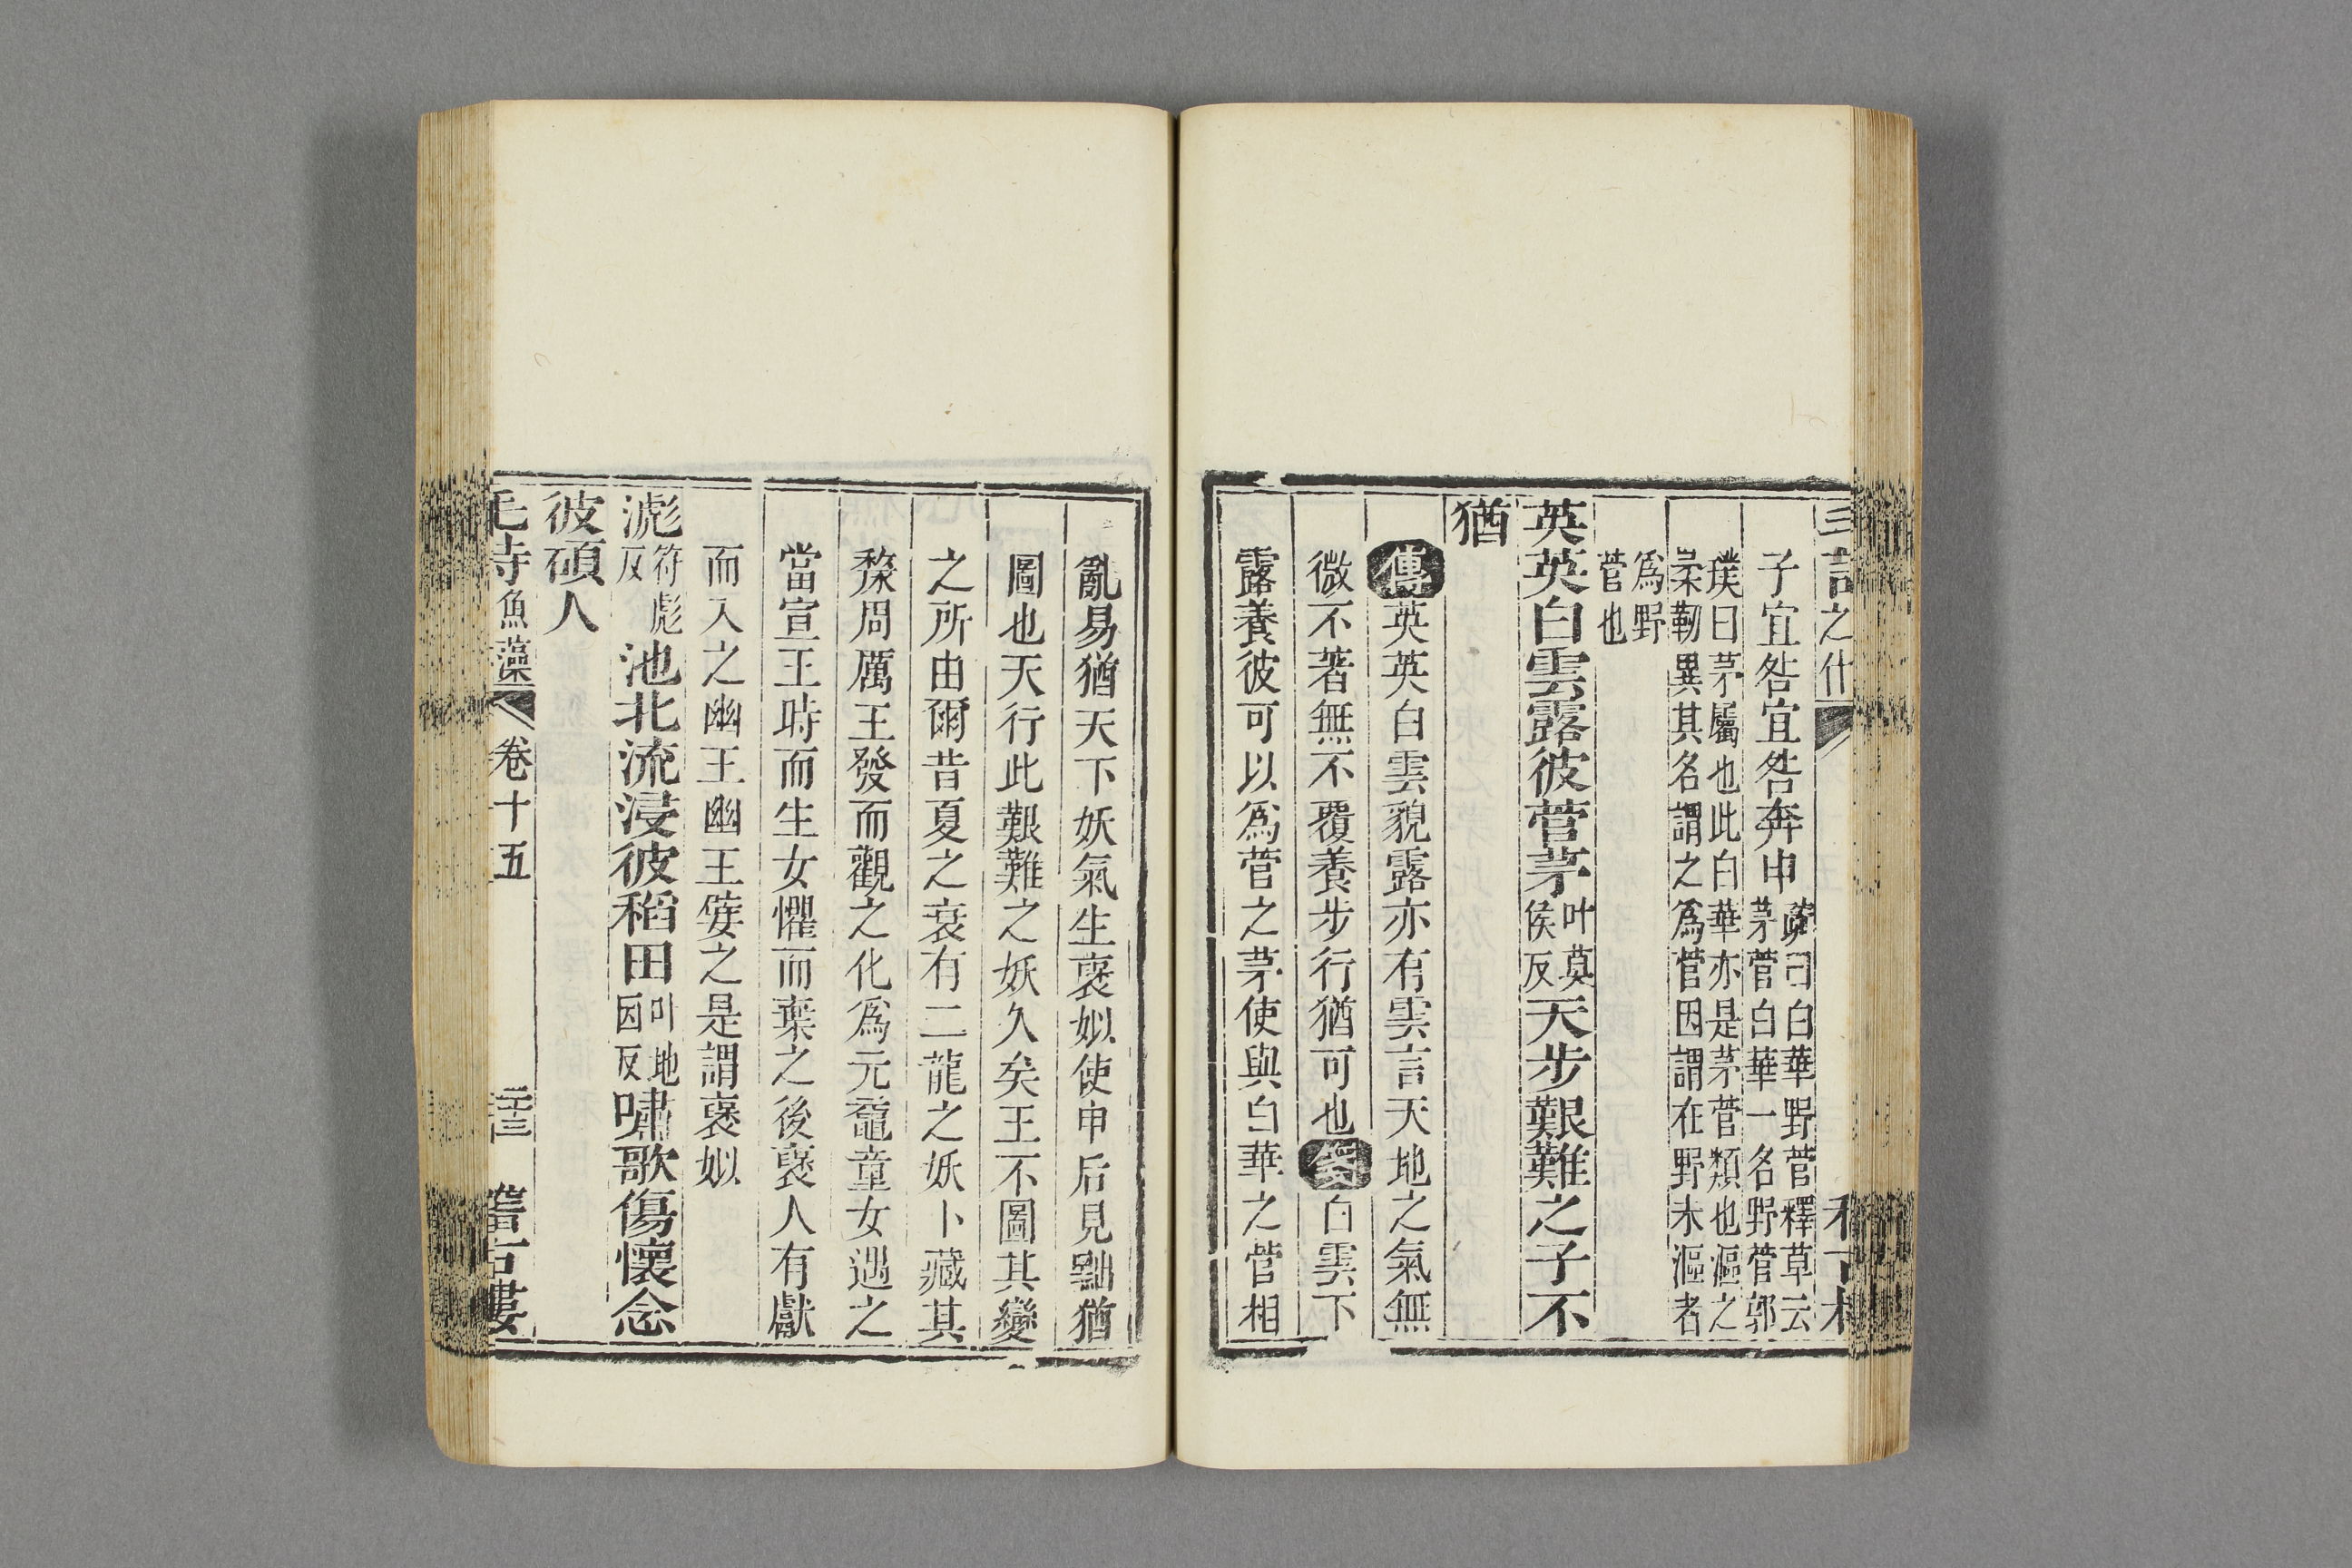 子宜咎宜咎奔申
疏曰白華野菅釋草云
茅菅白華一名野菅郭
璞曰茅屬也此白華亦是茅菅類也漚之
柔韌異其名謂之爲菅因謂在野未漚者
爲野
菅也
英英白雲露彼菅茅叶莫侯反天步艱難之子不
猶
傳英英白雲貌露亦有雲言天地之氣無
微不著無不覆養步行猶可也箋白雲下
露養彼可以爲菅之茅使與白華之菅相
亂易猶天下妖氣生襃姒使申后見黜猶
圖也天行此艱難之妖久矣王不圖其變
之所由爾昔夏之衰有二龍之妖卜藏其
漦周厲王發而觀之化爲元黿童女遇之
當宣王時而生女懼而棄之後襃人有獻
而入之幽王幽王嬖之是謂襃姒
滮符彪反池北流浸彼稻田叶地因反嘯歌傷懷念
彼碩人
毛詩魚藻 卷十五